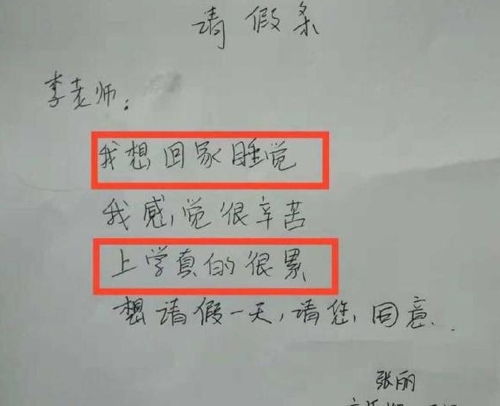 请假条
李老师：
我想回家睡觉
我感觉很辛苦
上学真的很累
想请假一天，请您，同意..
张丽